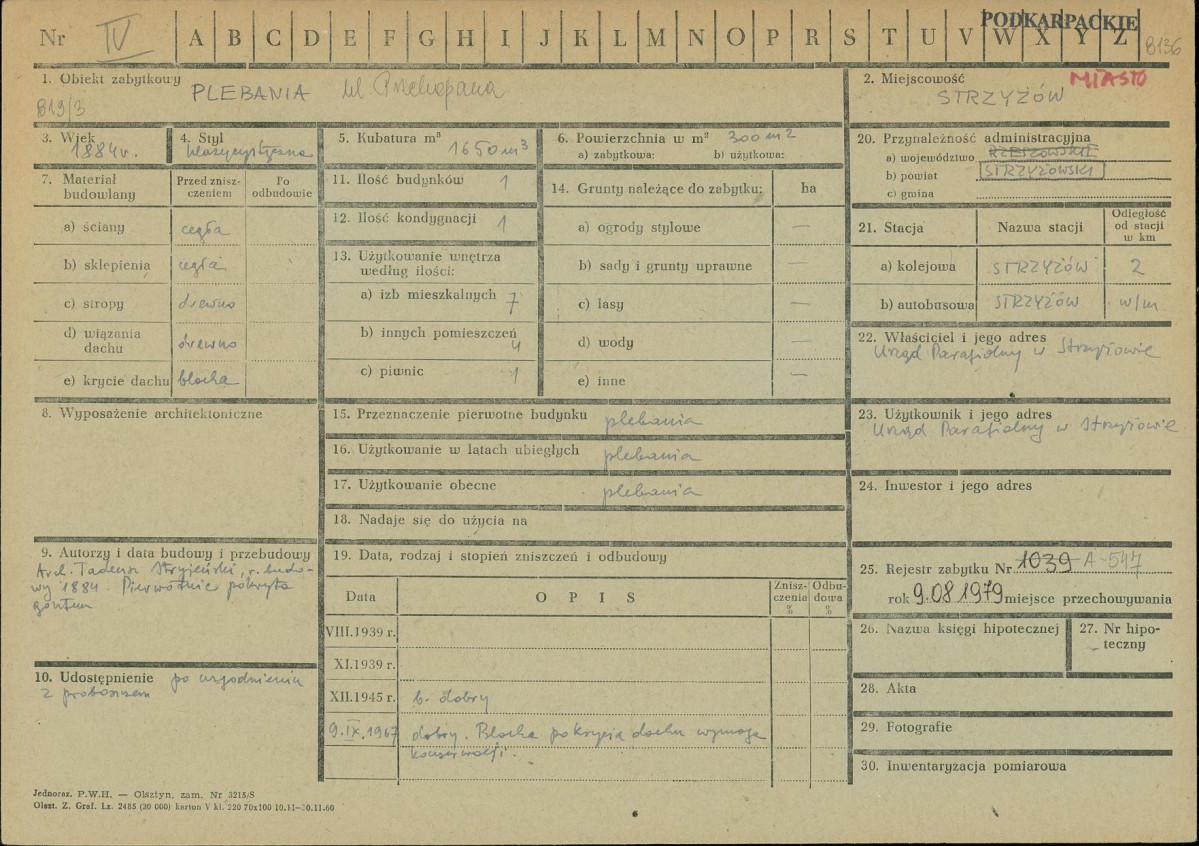 PODKARPACKIE
Nr IV A B C D E F G H I J K L M N O P R S T U V W X Y Z B136
1. Obiekt zabytkowy PLEBANIA ul. Przekopana
B19/3
2. Miejscowość MIASTO
STRZYŻÓW
3. Wiek
1884 r.
4. Styl
klasycystyczna
5. Kubatura m³ 1650 m³
6. Powierzchnia w m² 300 m²
a) zabytkowa: b) użytkowa:
7. Materiał budowlany
Przed zniszczeniem
Po odbudowie
a) ściany cegła
b) sklepienia cegła
c) stropy drewno
d) wiązania dachu drewno
e) krycie dachu blacha
8. Wyposażenie architektoniczne
9. Autorzy i data budowy i przebudowy
Arch. Tadeusz Stryjeński, r. budo-
wy 1884. Pierwotnie pokryta
gontem
10. Udostępnienie po uzgodnieniu
z proboszczem
11. Ilość budynków 1
12. Ilość kondygnacji 1
13. Użytkowanie wnętrza
według ilości:
a) izb mieszkalnych 7
b) innych pomieszczeń 4
c) piwnic 1
14. Grunty należące do zabytku: ha
a) ogrody stylowe —
b) sady i grunty uprawne —
c) lasy —
d) wody
e) inne —
15. Przeznaczenie pierwotne budynku plebania
16. Użytkowanie w latach ubiegłych plebania
17. Użytkowanie obecne plebania
18. Nadaje się do użycia na
19. Data, rodzaj i stopień zniszczeń i odbudowy
Data OPIS Zniszczenia % Odbudowa %
VIII.1939 r.
XI.1939 r.
XII.1945 r. b. dobry
9.IX.1967 dobry. Blacha pokrycia dachu wymaga
konserwacji.
20. Przynależność administracyjna
a) województwo RZESZOWSKIE
b) powiat STRZYŻOWSKI
c) gmina
21. Stacja Nazwa stacji Odległość od stacji w km
a) kolejowa STRZYŻÓW 2
b) autobusowa STRZYŻÓW w/m
22. Właściciel i jego adres
Urząd Parafialny w Strzyżowie
23. Użytkownik i jego adres
Urząd Parafialny w Strzyżowie
24. Inwestor i jego adres
25. Rejestr zabytku Nr 1039 A-547
rok 9.08 1979 miejsce przechowywania
26. Nazwa księgi hipotecznej
27. Nr hipoteczny
28. Akta
29. Fotografie
30. Inwentaryzacja pomiarowa
Jednoraz. P.W.H. — Olsztyn, zam. Nr 3215/S
Olszt. Z. Graf. Lz. 2485 (20 000) karton V kl. 220 70x100 10.11—30.11.60